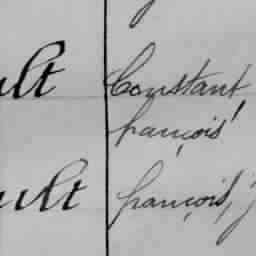 ult Constant,
françois
ult françois, j